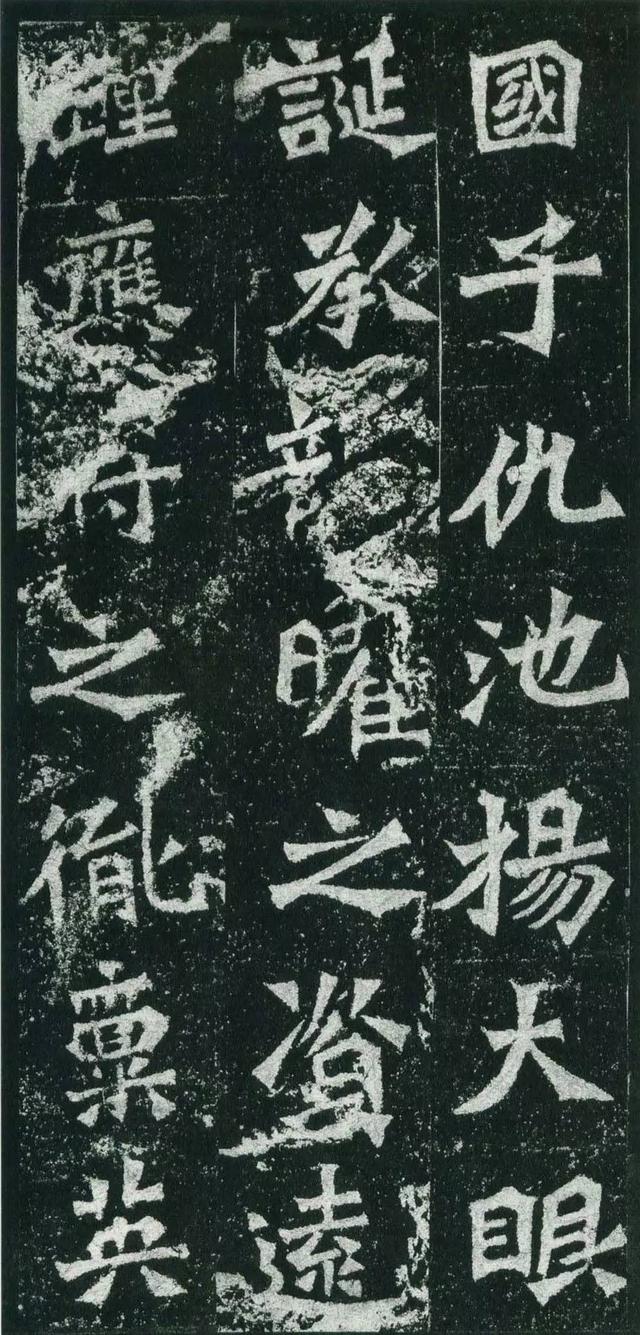 國子仇池楊大眼
誕承龍曜之資遠
踵應符之胤稟英